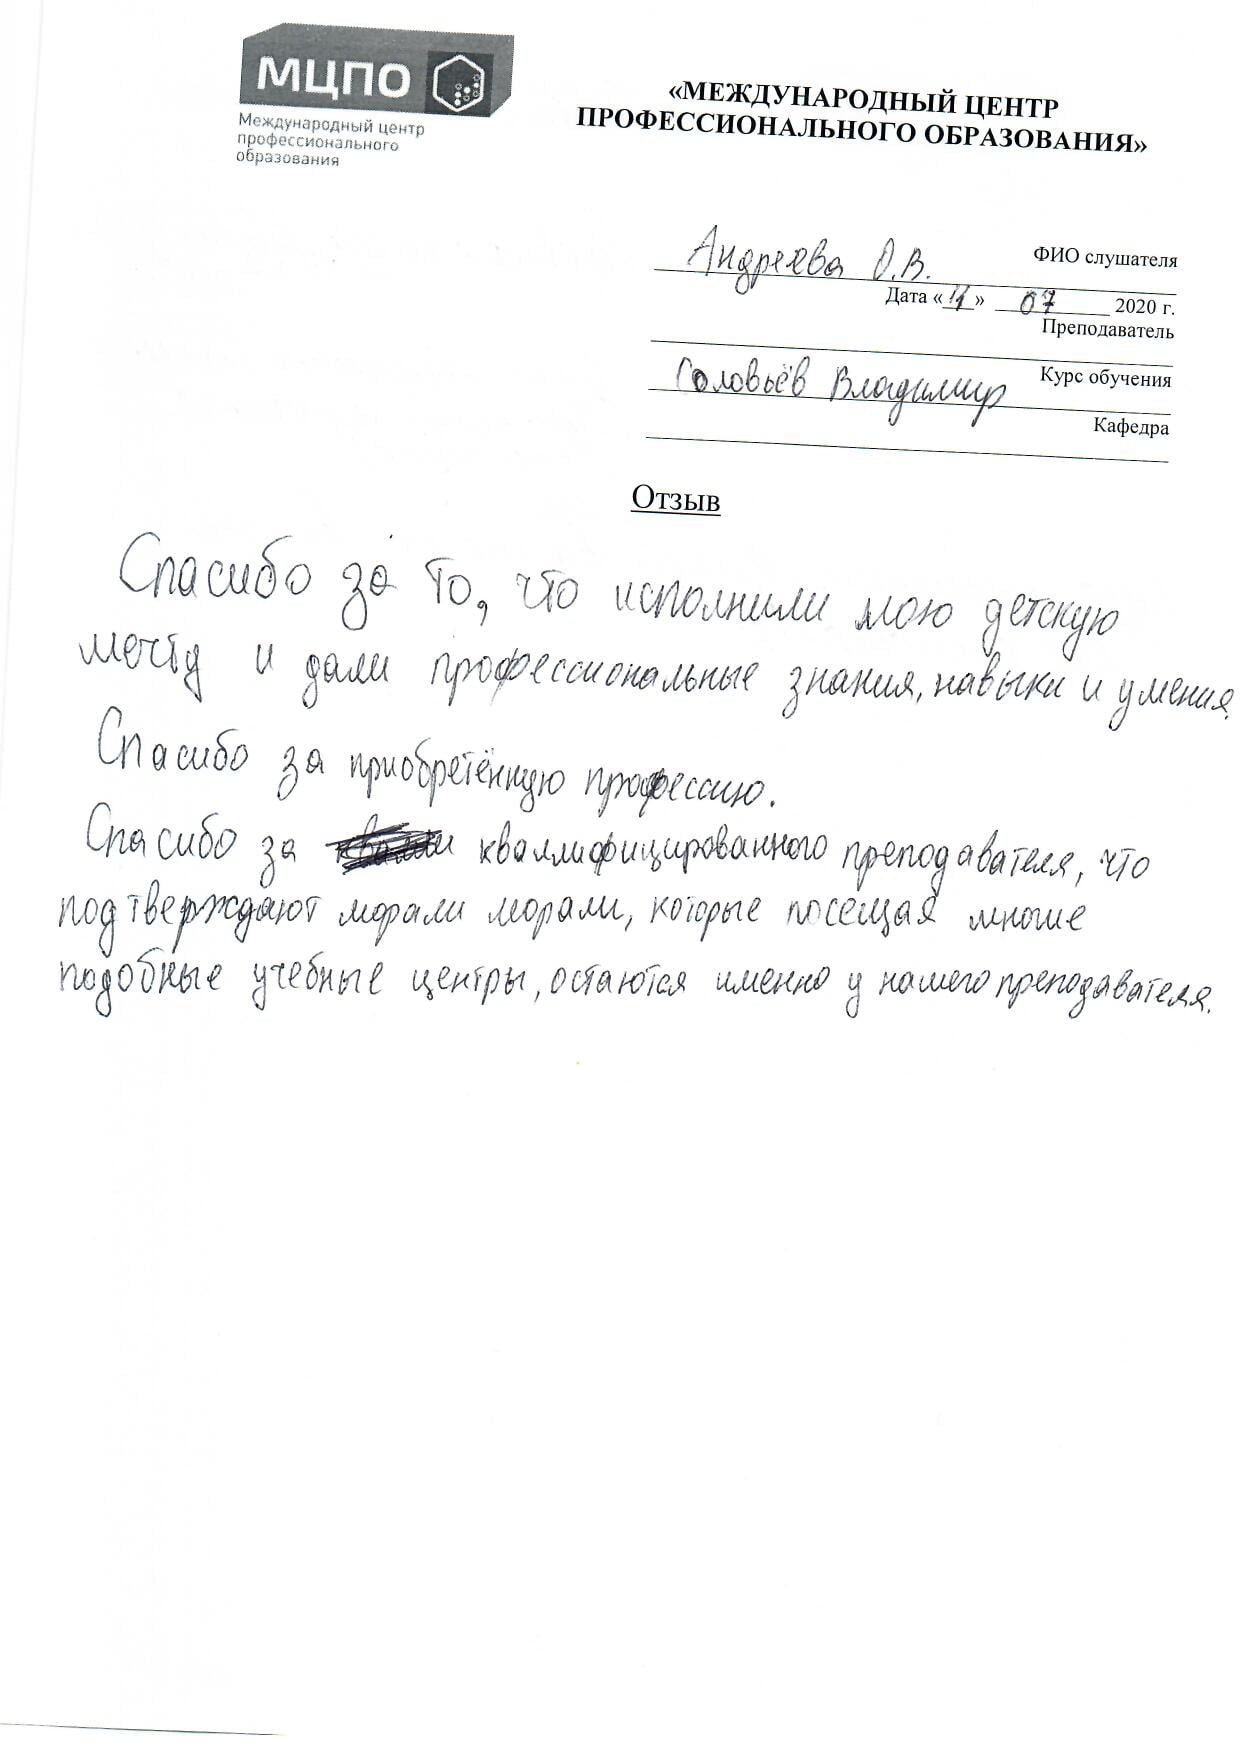 МЦПО
Международный центр
профессионального
образования
«МЕЖДУНАРОДНЫЙ ЦЕНТР
ПРОФЕССИОНАЛЬНОГО ОБРАЗОВАНИЯ»
Андреева О.В. ФИО слушателя
Дата « » 07 2020 г.
Преподаватель
Соловьёв Владимир Курс обучения
Кафедра
Отзыв
Спасибо за то, что исполнили мою детскую
мечту и дали профессиональные знания, навыки и умения.
Спасибо за приобретённую профессию.
Спасибо за кваллифицированного преподавателя, что
подтверждают морали морали, которые посещая многие
подобные учебные центры, остаются именно у нашего преподавателя.